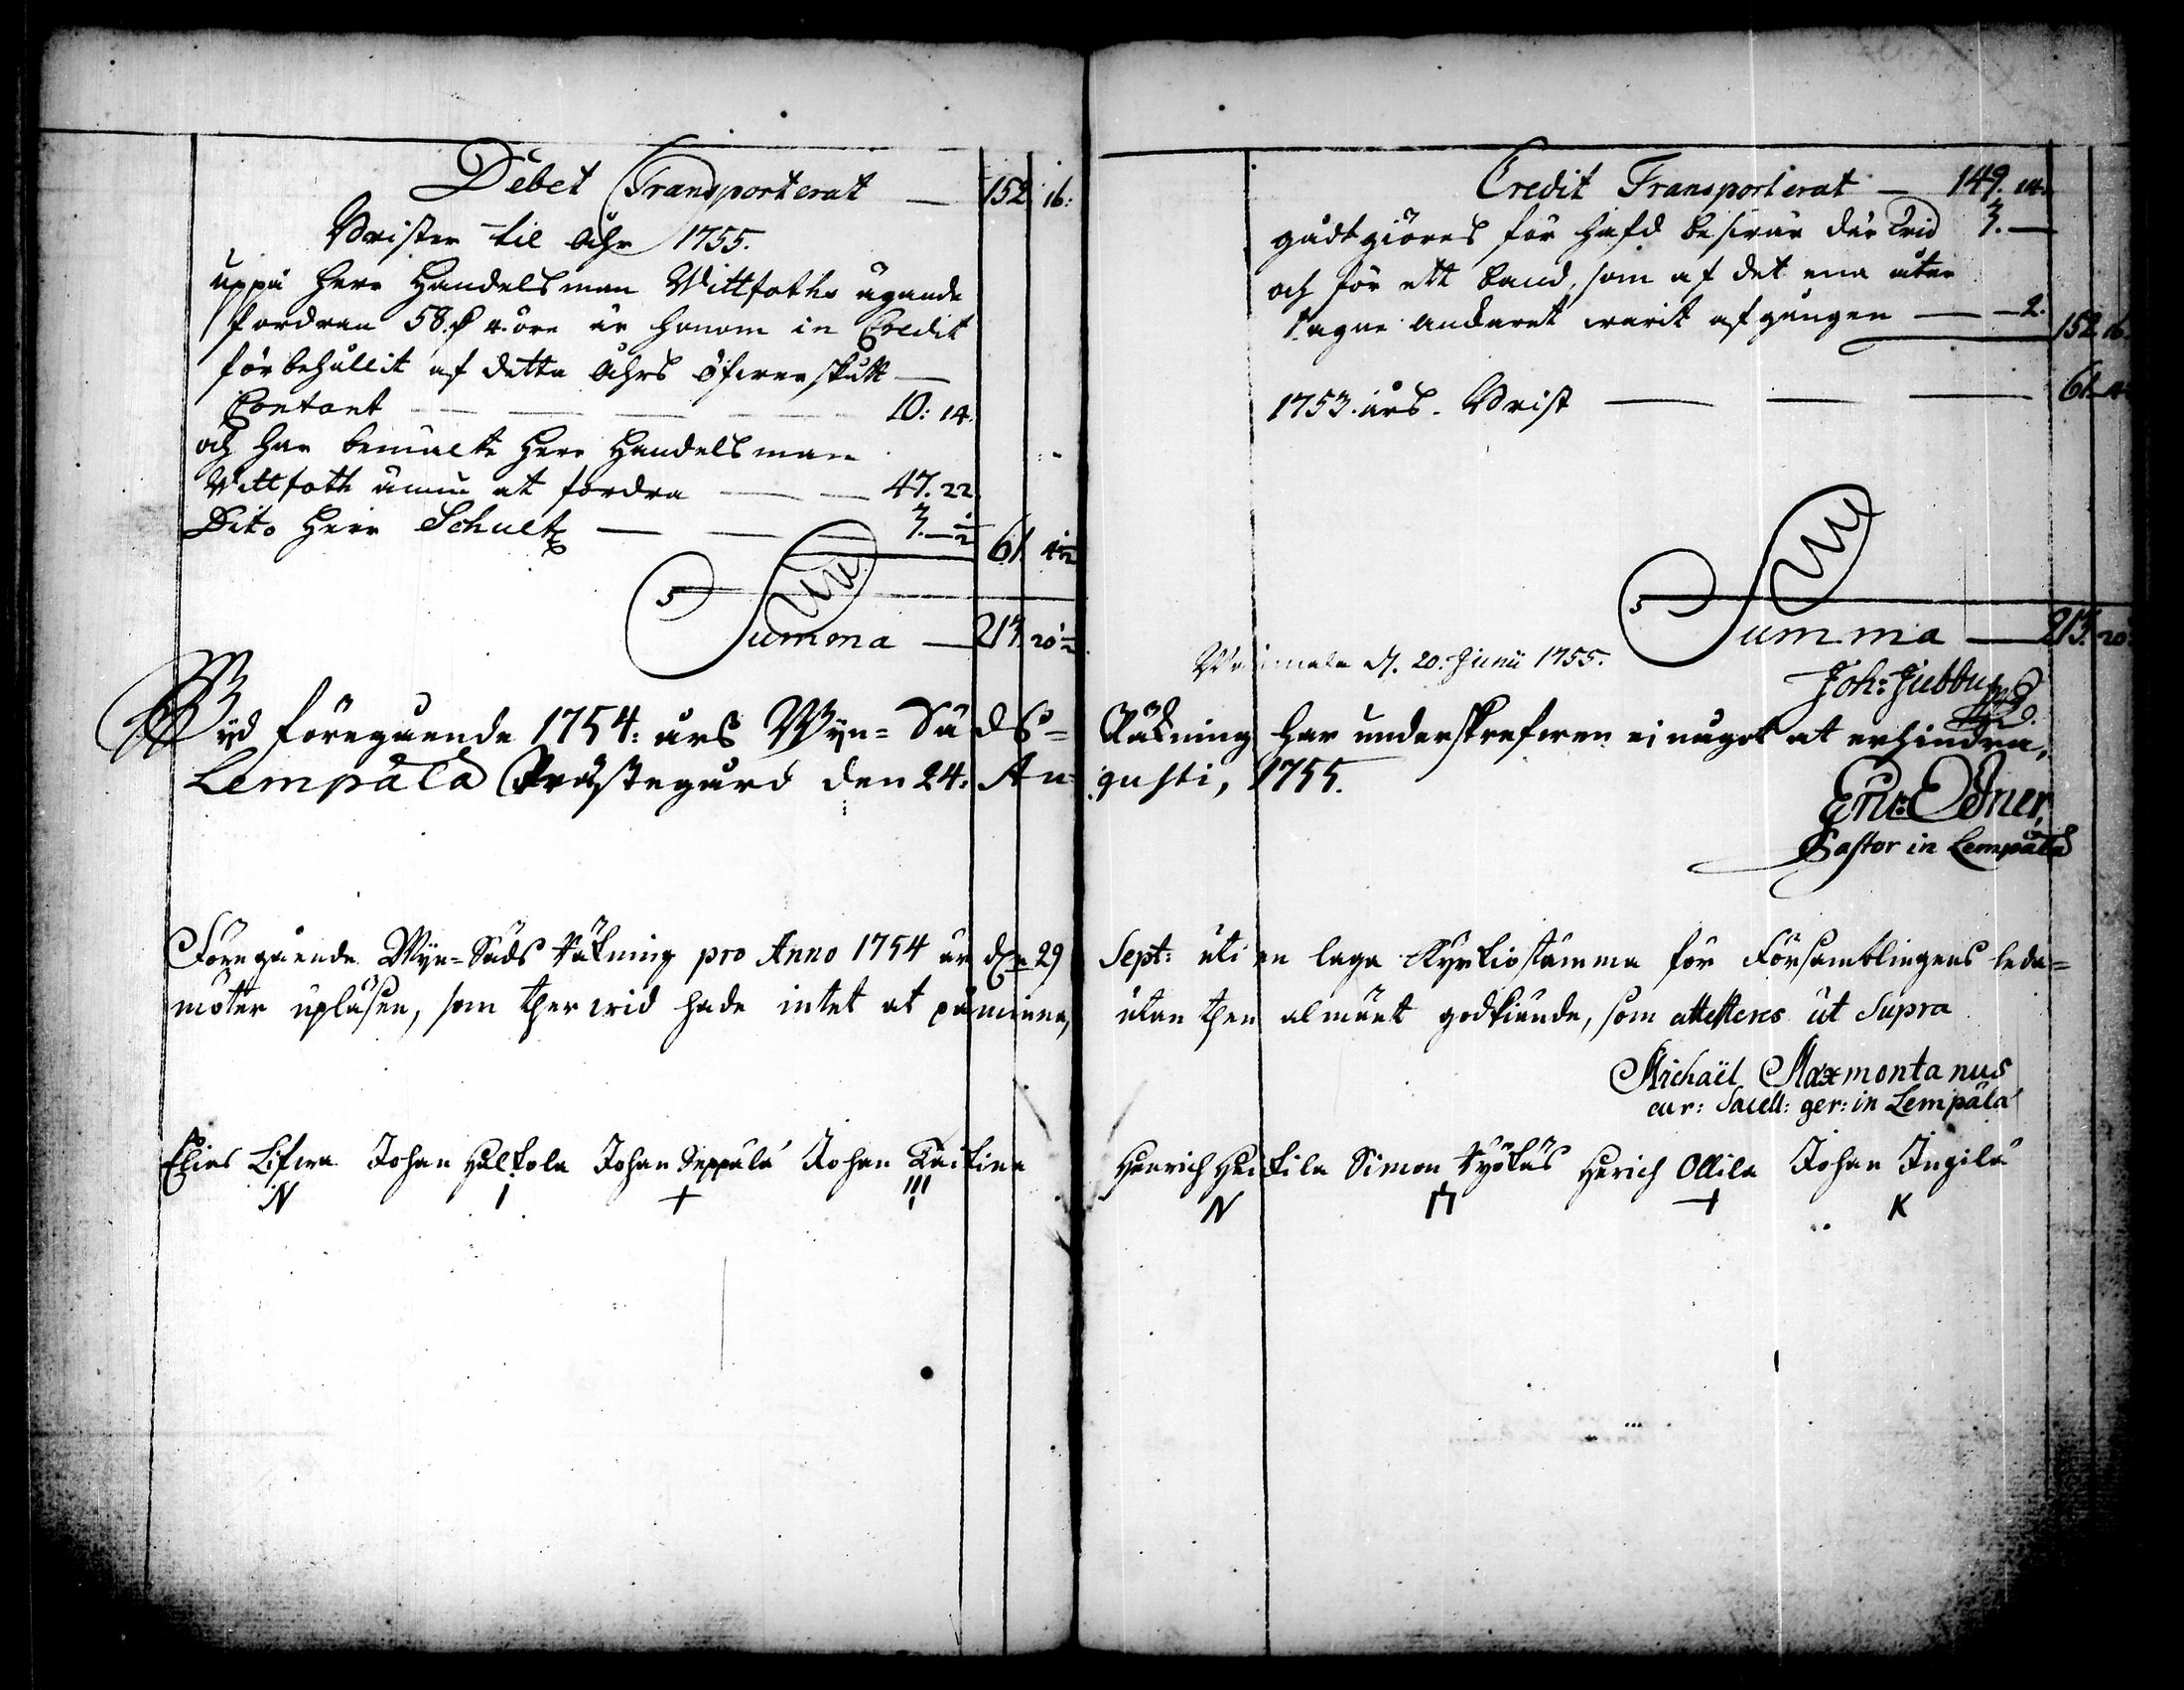 Debet Transporterat — 152 16:
Brister til Åhr 1755.
uppå Herr Handelsman Wittfoths ägande
fordran 58. öre är honom in Credit
förbehållit af detta Åhrs öfverskutt —
Contant — — — — 10: 14.
och har bemälte Herr Handelsman
Wittfoth ännu at fordra — — 47. 22
Dito Herr Schultz — — 3. ½ 61 4½
Summa — 213 20½
Credit Transporterat — 149. 14.
gådtgiöres för hafd besvär där 3. —
och för ett band, som af det ena åter
tagne ankaret warit afgången — — 2. 152 16.
1753. års. Brist — — — 61 4
Summa — 213. 20
d. 20. Junii 1755.
Wid föregående 1754: års Wijn-Säds-Räkning har underskrefven ei något at erhindra,
Lempälä Prästegård den 24: Augusti, 1755.
Pastor in Lempälä
Föregående Wijn-Säds räkning pro Anno 1754 är d. 29 Sept: uti en laga Kyrkiostämma för Församblingens leda=
möter upläsen, som ther wid hade intet at påminna, utan then almänt godkiände, som attesteres ut Supra
Michaël Maxmontanus
cur: Sacell: ger: in Lempälä
Elias Johan Johan Seppälä Johan Henrich Heikilä Simon Ryökäs Herich Ollila Johan Ingilä
N I + III N + K